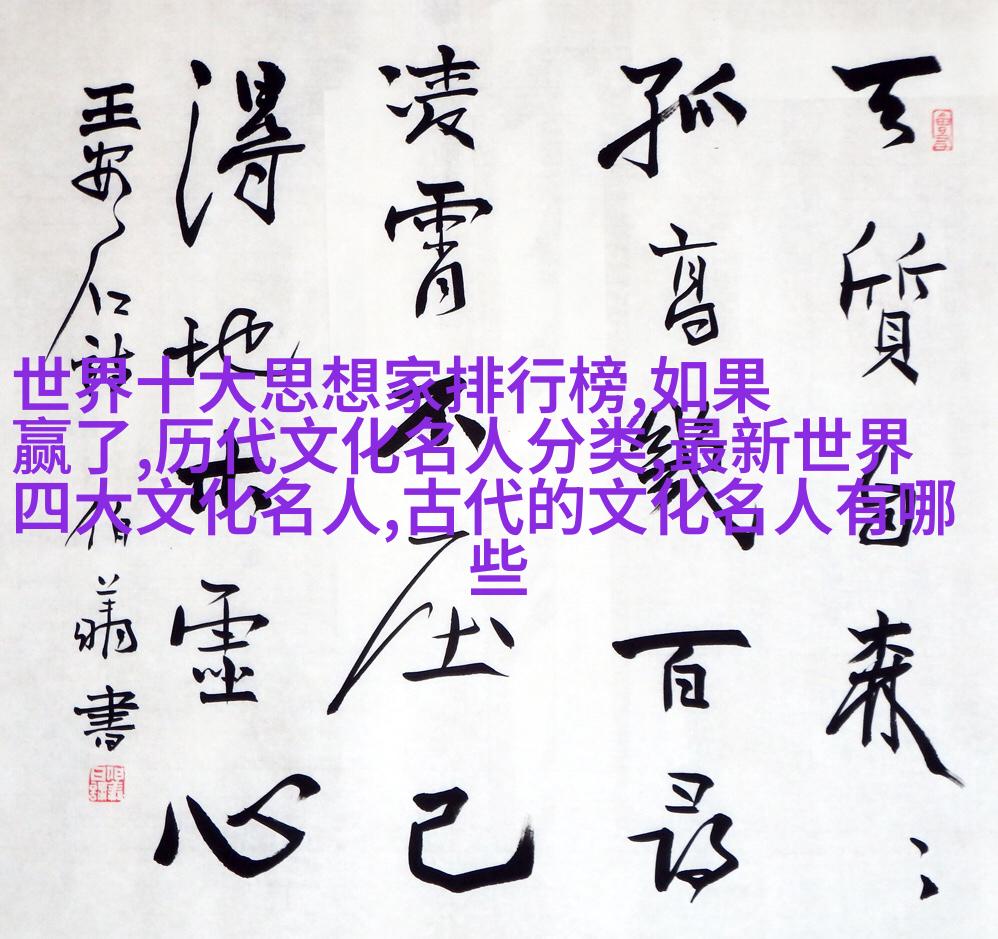 天質自森〻
孤高幾百尋
凌霄不屈己
得地本虛心
王安石詩 伯羲書
世界十大思想家排行榜,如果
赢了,历代文化名人分类,最新世界
四大文化名人,古代的文化名人有哪
些